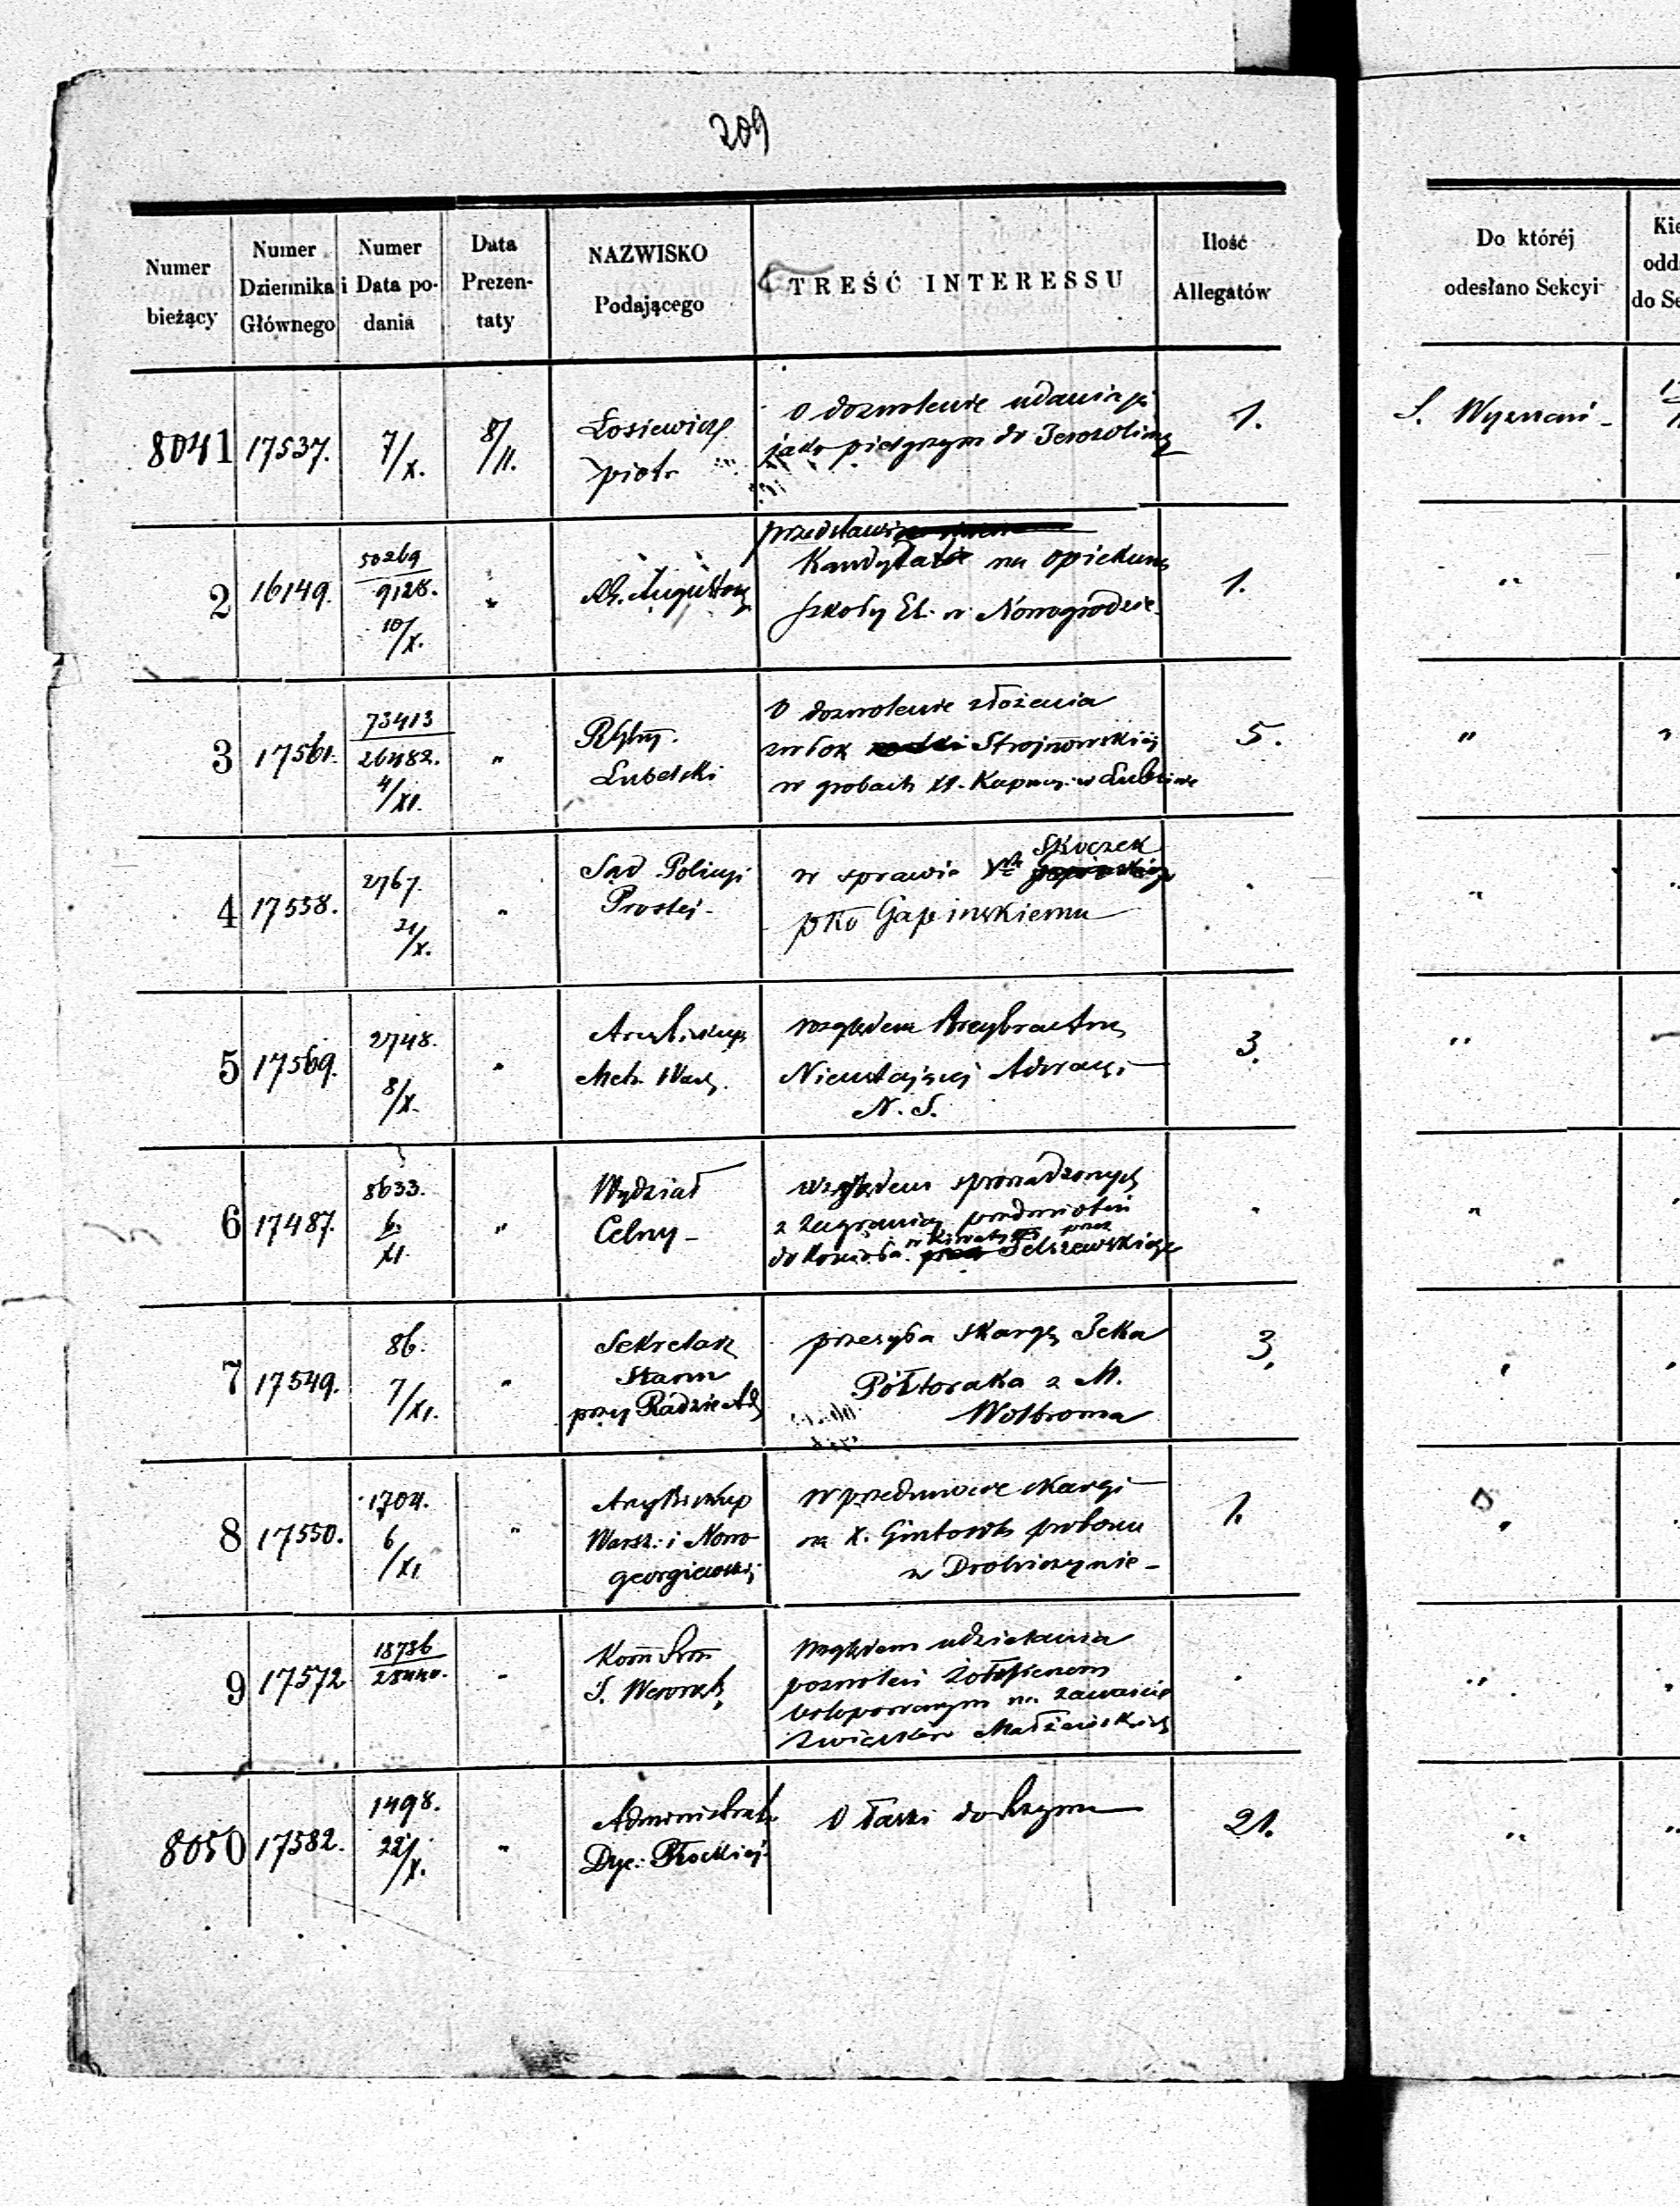 209
Numer bieżący
Numer Dziennika Głównego
Numer i Data podania
Data Prezentaty
NAZWISKO Podającego
TREŚĆ INTERESSU
Ilość Allegatów
Do któréj odesłano Sekcyi
8041 17537. 7/X. 8/11. Łosiewicz piotr
o dozwolenie udania się
jako pielgrzym do Jerozolimy
1.
S. Wyznań
2 16149. 50269/9128. 10/X. " Augustow
przedstawi
Kandydata na opiekuna
szkoły El. w Nowogrodzie
1.
"
3 17561. 73413/26482. 4/XI. "
Lubelski
O dozwolenie złożenia
zwłok Strojnowskiéj
w grobach XX. Kapuc. w Lublinie
5.
"
4 17558. 2767. 21/X. " Sąd Policyi
Prostéj
w sprawie Skoczek
pko Gapinskiemu
"
5 17569. 2748. 8/X. " Arcybiskup
Metr. Warsz.
względem Arcybractwa
Nieustającej Adoracyi
N. S.
3.
"
6 17487. 8633. 6/XI. " Wydział
Celny
względem sprowadzonych
z zagranicy przedmiotów
do Kościoła przez
"
7 17549. 86. 7/XI. " Sekretarz
Stanu
przy Radzie Ad
przesyła skargę Icka
Półtoraka z M.
Wolbroma
3.
8 17550. 1704. 6/XI. " Arcybiskup
Warsz. i Nowo-
georgiewski
w przedmiocie skargi
na X. proboszcza
w Drohiczynie
1.
"
9 17572 18736/28440. " Kom
S. Wewnętr
względem udzielania
pozwoleń żołnierzom
urlopowanym na zawarcie
związków Małżeńskich
"
8050 17582. 1498. 22/X. " Administrat
Dyec. Płockiéj
O łaski do Rzymu
21.
"